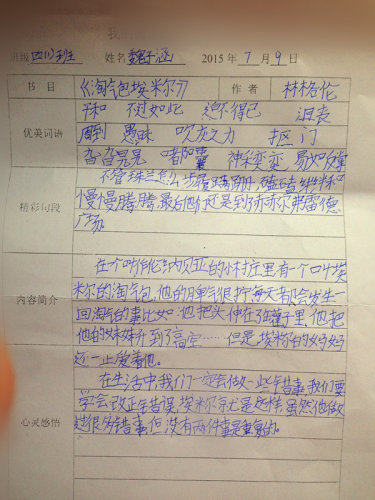 班级 四(1)班 姓名 魏子涵 2015年7月9日
书目 《淘气包埃米尔》 作者 林格伦
优美词语
不过如此 迫不得已 沮丧
愚昧 吹灰之力 抠门
神采奕奕 易如反掌
精彩句段
不管珠兰怎么步履蹒跚,磕磕绊绊和
慢慢腾腾,最后他们还是到了赤尔弗雷德
广场
内容简介
在个叫伦纳贝亚的小村庄里有一个叫埃
米尔的淘气包,他的脾气很拧每天都会发生一
回淘气的事比如:他把头伸在了罐子里,他把
他的妹妹升到了高空……但是埃米尔的妈妈
还一止爱着他。
心灵感悟
在生活中我们一定会做一些错事,我们要
学会改正错误,埃米尔就是这样,虽然他做
过很多错事,但没有两件事是重复的。